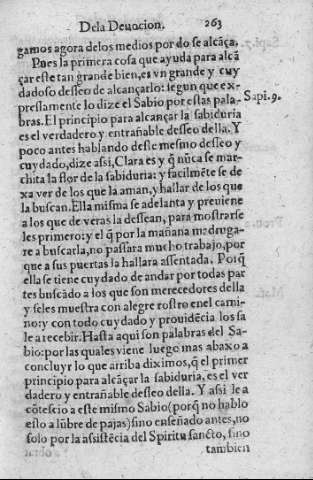 Dela Deuocion. 263
gamos agora delos medios por do se alcãça,
Pues la primera cosa que ayuda para alcã
çar este tan grande bien, es vn grande y cuy
dadoso desseo de alcançarlo: segun que ex-
pressamente lo dize el Sabio por estas pala-
bras. El principio para alcançar la sabiduria
Sapi. 9.
es el verdadero y entrañable desseo della. Y
poco antes hablando deste mesmo desseo y
cuydado, dize assi, Clara es y q̃ nũca se mar-
chita la flor de la sabiduria: y facilmẽte se de
xa ver de los que la aman, y hallar de los que
la buscan. Ella misma se adelanta y preuiene
a los que de veras la dessean, para mostrarse
les primero: y el q̃ por la mañana madruga-
re a buscarla, no passara mucho trabajo, por
que a sus puertas la hallara assentada. Porq̃
ella se tiene cuydado de andar por todas par
tes buscãdo a los que son merecedores della
y seles muestra con alegre rostro enel cami-
no: y con todo cuydado y prouidẽcia los sa
le a recebir. Hasta aqui son palabras del Sa-
bio: por las quales viene luego mas abaxo a
concluyr lo que arriba diximos, q̃ el primer
principio para alcãçar la sabiduria, es el ver
dadero y entrañable desseo della. Y assi le a
cõtescio a este mismo Sabio (porq̃ no hablo
esto a lũbre de pajas) sino enseñado antes, no
solo por la assistẽcia del Spiritu sancto, sino
tambien